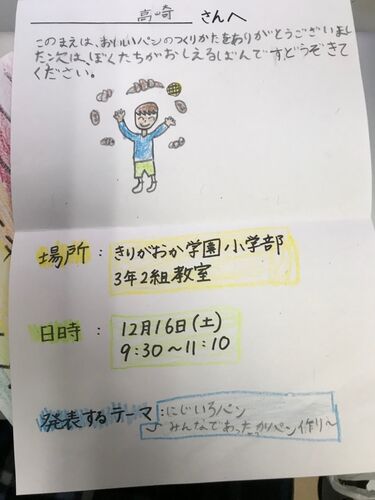 高崎 さんへ
このまえは、おいしいパンのつくりかたをありがとうございまし
た。次は、ぼくたちがおしえるばんです。どうぞきて
ください。
場所：きりがおか学園 小学部
3年2組教室
日時：12月16日(土)
9:30〜11:10
発表するテーマ：にじいろパン
みんなでわったかパン作り〜